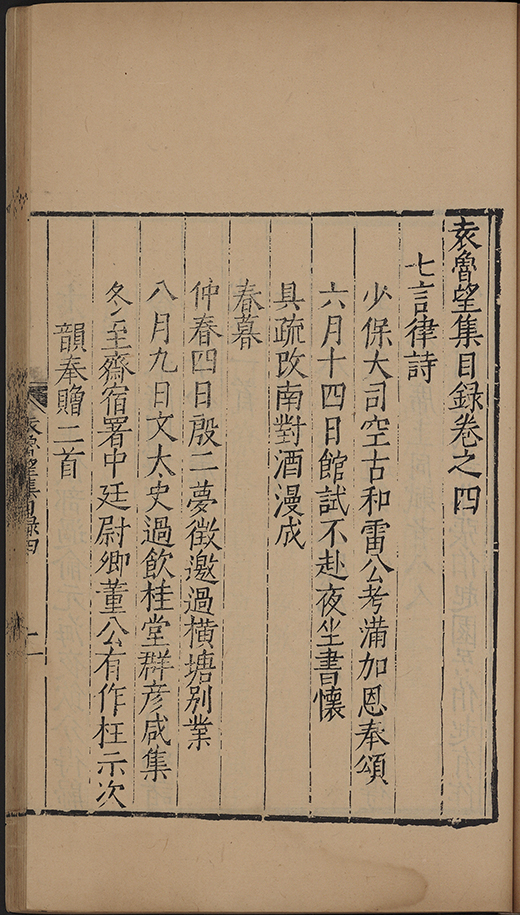 袁魯望集目録卷之四
七言律詩
少保大司空古和雷公考滿加恩奉頌
六月十四日館試不赴夜坐書懷
具疏改南對酒漫成
春暮
仲春四日殷二夢徵邀過橫塘別業
八月九日文太史過飲桂堂群彦咸集
冬至齋宿署中廷尉卿董公有作枉示次
韻奉贈二首
袁魯望集目録四